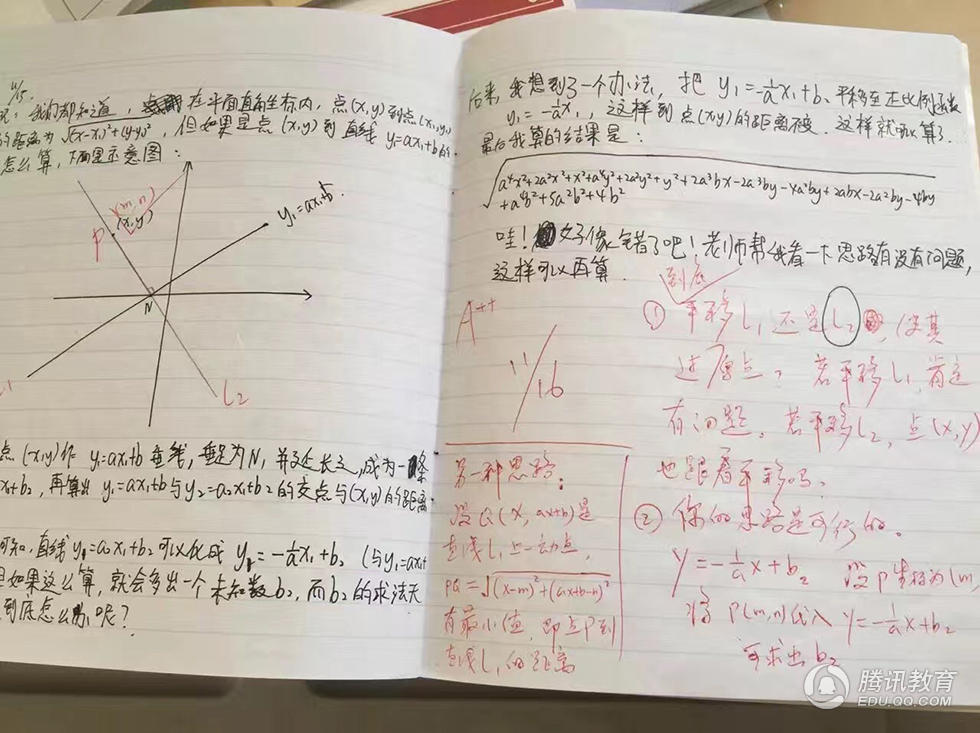 11/5.
我们都知道，在平面直角坐标内，点(x,y)到点(x₁,y₁)
的距离为√(x-x₁)²+(y-y₁)²，但如果是点(x,y)到直线y=ax₁+b的
怎么算，下面显示意图：
(m,n)
(x,y)
P
y₁=ax₁+b
N
L2
点(x,y)作y₁=ax₁+b垂线，垂足为N，并延长之，成为一条
x₁+b₂，再算出y₁=ax₁+b与y₂=a₂x₁+b₂的交点与(x,y)的距离
可知，直线y₂=a₂x₁+b₂可以化成y₂=-1/a x₁+b₂（与y₁=ax₁+
如果这么算，就会多出一个未知数b₂，而b₂的求法
到底怎么办呢？
后来，我想到了一个办法，把y₁=-1/a x₁+b₂平移至正比例函数
y₁=-1/a x₁，这样到点(x,y)的距离不变．这样就可以算了．
最后我算的结果是：
√a⁴x²+2a²x²+x²+a⁴y²+2a²y²+y²+2a³bx-2a³by-4a²by+2abx-2a²by-4by
+a⁴b²+5a²b²+4b²
哇！好像算错了吧！老师帮我看一下思路有没有问题，
这样可以再算．
A⁺⁺
11/16
到底
① 平移L₁还是L₂，使其
过原点？若平移L₁，肯定
有问题。若平移L₂，点(x,y)
也跟着平移吗。
② 你的思路是可行的。
y=-1/a x+b₂ 设P坐标为(m,
将P(m,n)代入y=-1/a x+b₂
可求出b₂
另一种思路：
设Q(x,ax+b)是
直线L₁上一动点，
PQ=√(x-m)²+(ax+b-n)²
有最小值，即点P到
直线L₁的距离
腾讯教育
EDU.QQ.COM